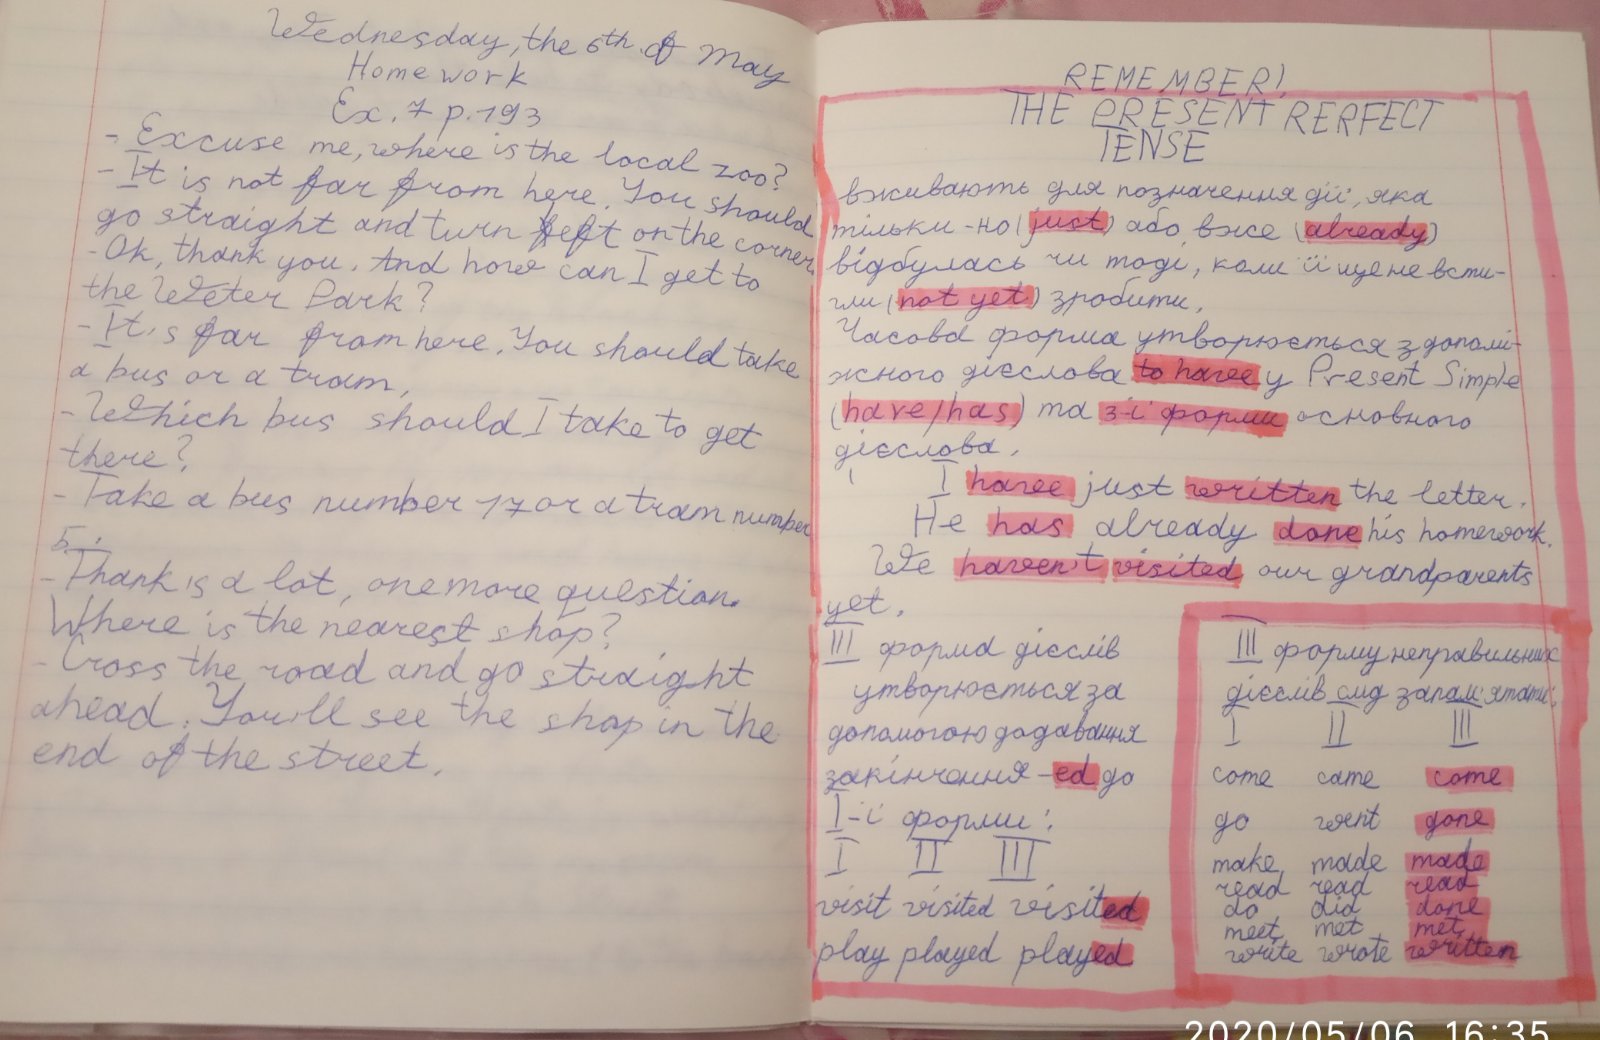 Wednesday, the 6th of May
Homework
Ex. 7 p. 193
- Excuse me, where is the local zoo?
- It is not far from here. You should
go straight and turn left on the corner.
- Ok, thank you. And how can I get to
the Weter Park?
- It's far from here. You should take
a bus or a tram.
- Which bus should I take to get
there?
- Take a bus number 17 or a tram number
5.
- Thank is a lot, one more question.
Where is the nearest shop?
- Cross the road and go straight
ahead. You'll see the shop in the
end of the street.
REMEMBER!
THE PRESENT RERFECT
TENSE
вживають для позначення дії, яка
тільки-но (just) або вже (already)
відбулась чи тоді, коли її ще не всти-
гли (not yet) зробити.
Часова форма утворюється з допомі-
жного дієслова to have у Present Simple
(have/has) та 3-ї форми основного
дієслова.
I have just written the letter.
He has already done his homework.
We haven't visited our grandparents
yet.
III форма дієслів
утворюється за
допомогою додавання
закінчення -ed до
I-ї форми:
I II III
visit visited visited
play played played
III форму неправильних
дієслів слід запам'ятати:
I II III
come came come
go went gone
make made made
read read read
do did done
meet met met
write wrote written
2020/05/06 16:35